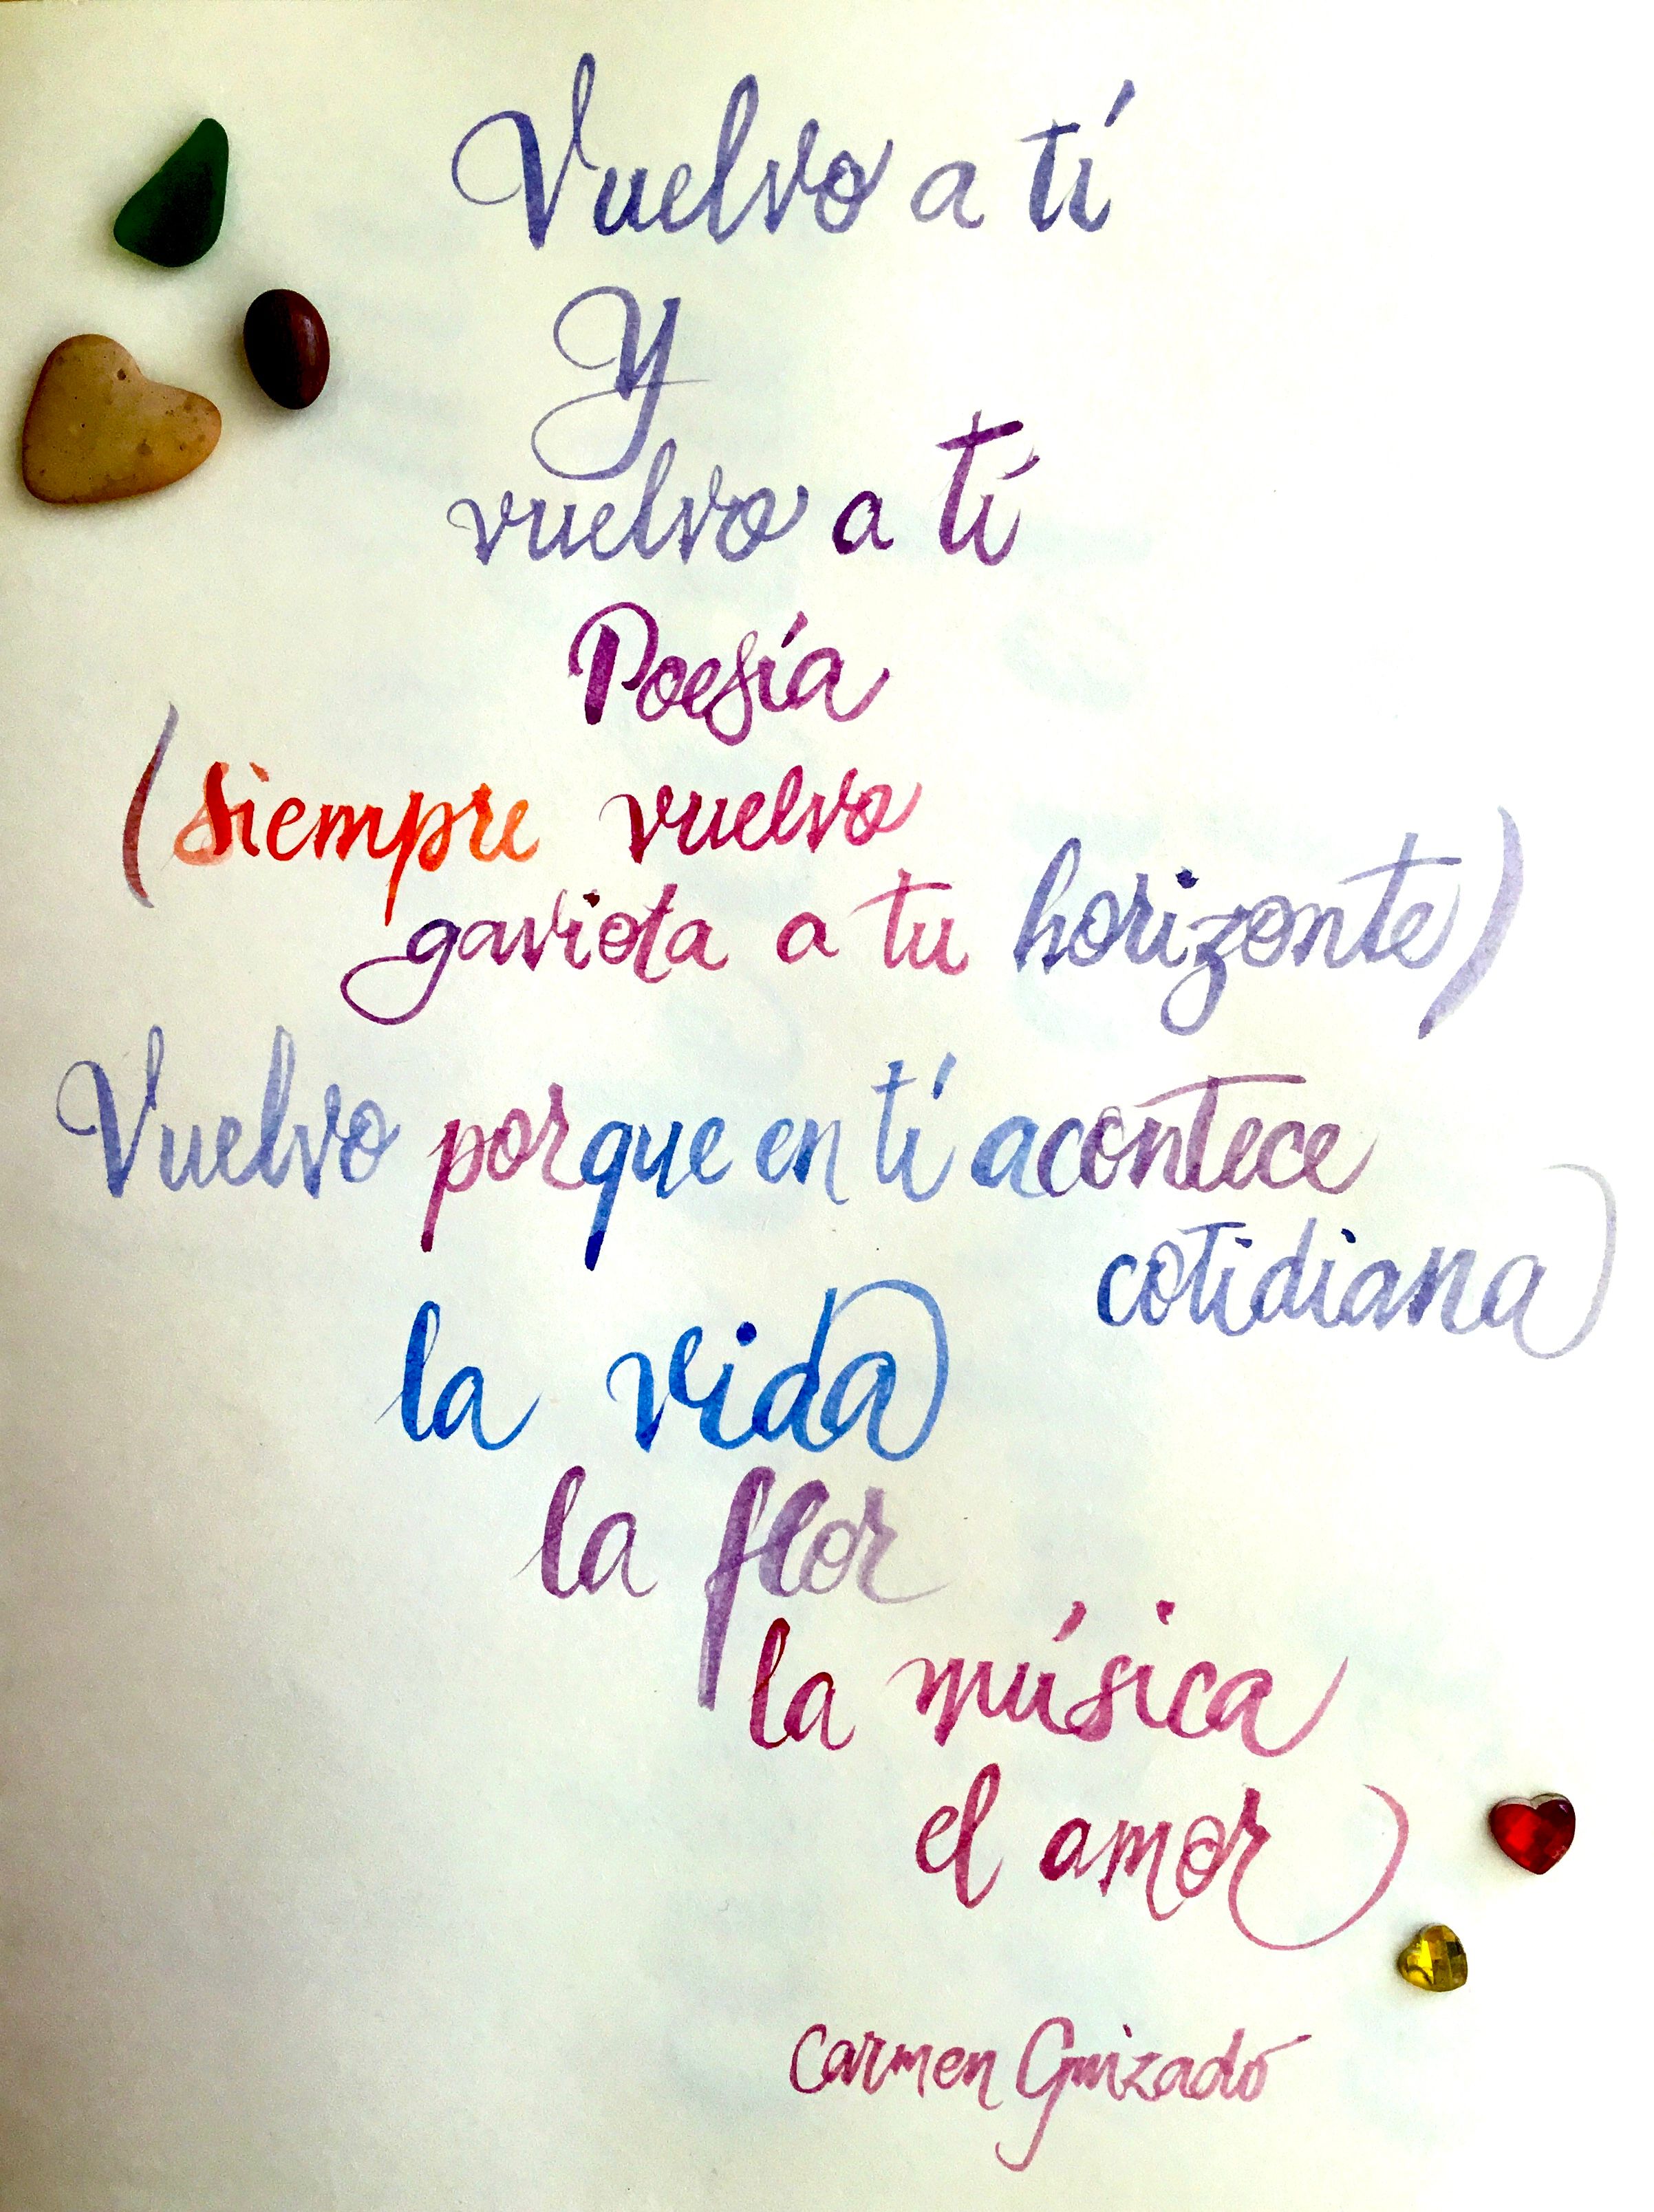 Vuelvo a tí
Y
vuelvo a tí
Poesía
(siempre vuelvo
gaviota a tu horizonte)
Vuelvo porque en tí acontece
cotidiana
la vida
la flor
la música
el amor
Carmen Guizado